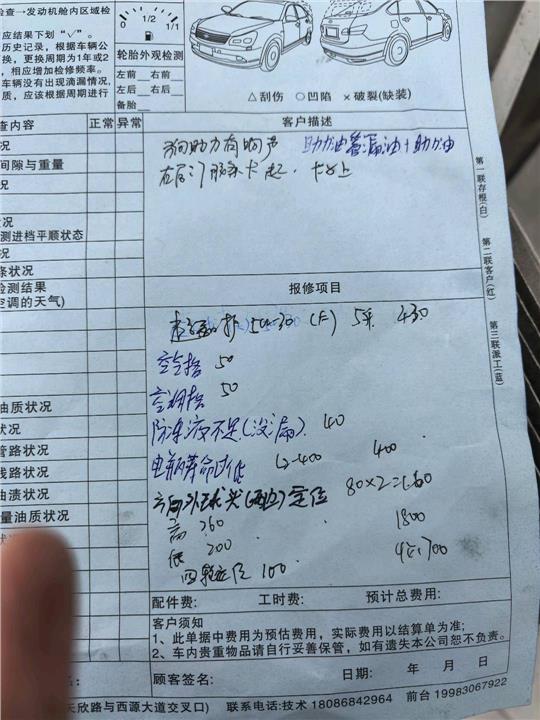 检查→发动机舱内区域检
应结果下划“√”。
历史记录，根据车辆公
换，更换周期为1年或2
，相应增加检修频率。
车辆没有出现滴漏情况，
质，应该根据周期进行
0 1/2 1/1
轮胎外观检测
左前 右前
左后 右后
备胎
△刮伤 ○凹陷 ×破裂(缺装)
查内容 正常 异常 客户描述
况
间隙与重量
况
测进档平顺状态
况
条状况
检测结果
空调的天气)
油质状况
状况
管路状况
线路状况
油渍状况
量油质状况
方向助力有响声 助力油管漏油+助力油
卡起.
第一联存根(白)
第二联客户(红)
第三联派工(蓝)
报修项目
5W-30 430
空气格 50
空调格 50
防冻液不足(没漏). 40
电瓶寿命过低 12-400 400
方向外球头(两边)定位 80×2=160
高 260 1800
低 200
100
配件费: 工时费: 预计总费用:
客户须知
1、此单据中费用为预估费用，实际费用以结算单为准;
2、车内贵重物品请自行妥善保管，如有遗失本公司恕不负责。
顾客签名: 日期: 年 月 日
天欣路与西源大道交叉口) 联系电话:技术 18086842964 前台 19983067922